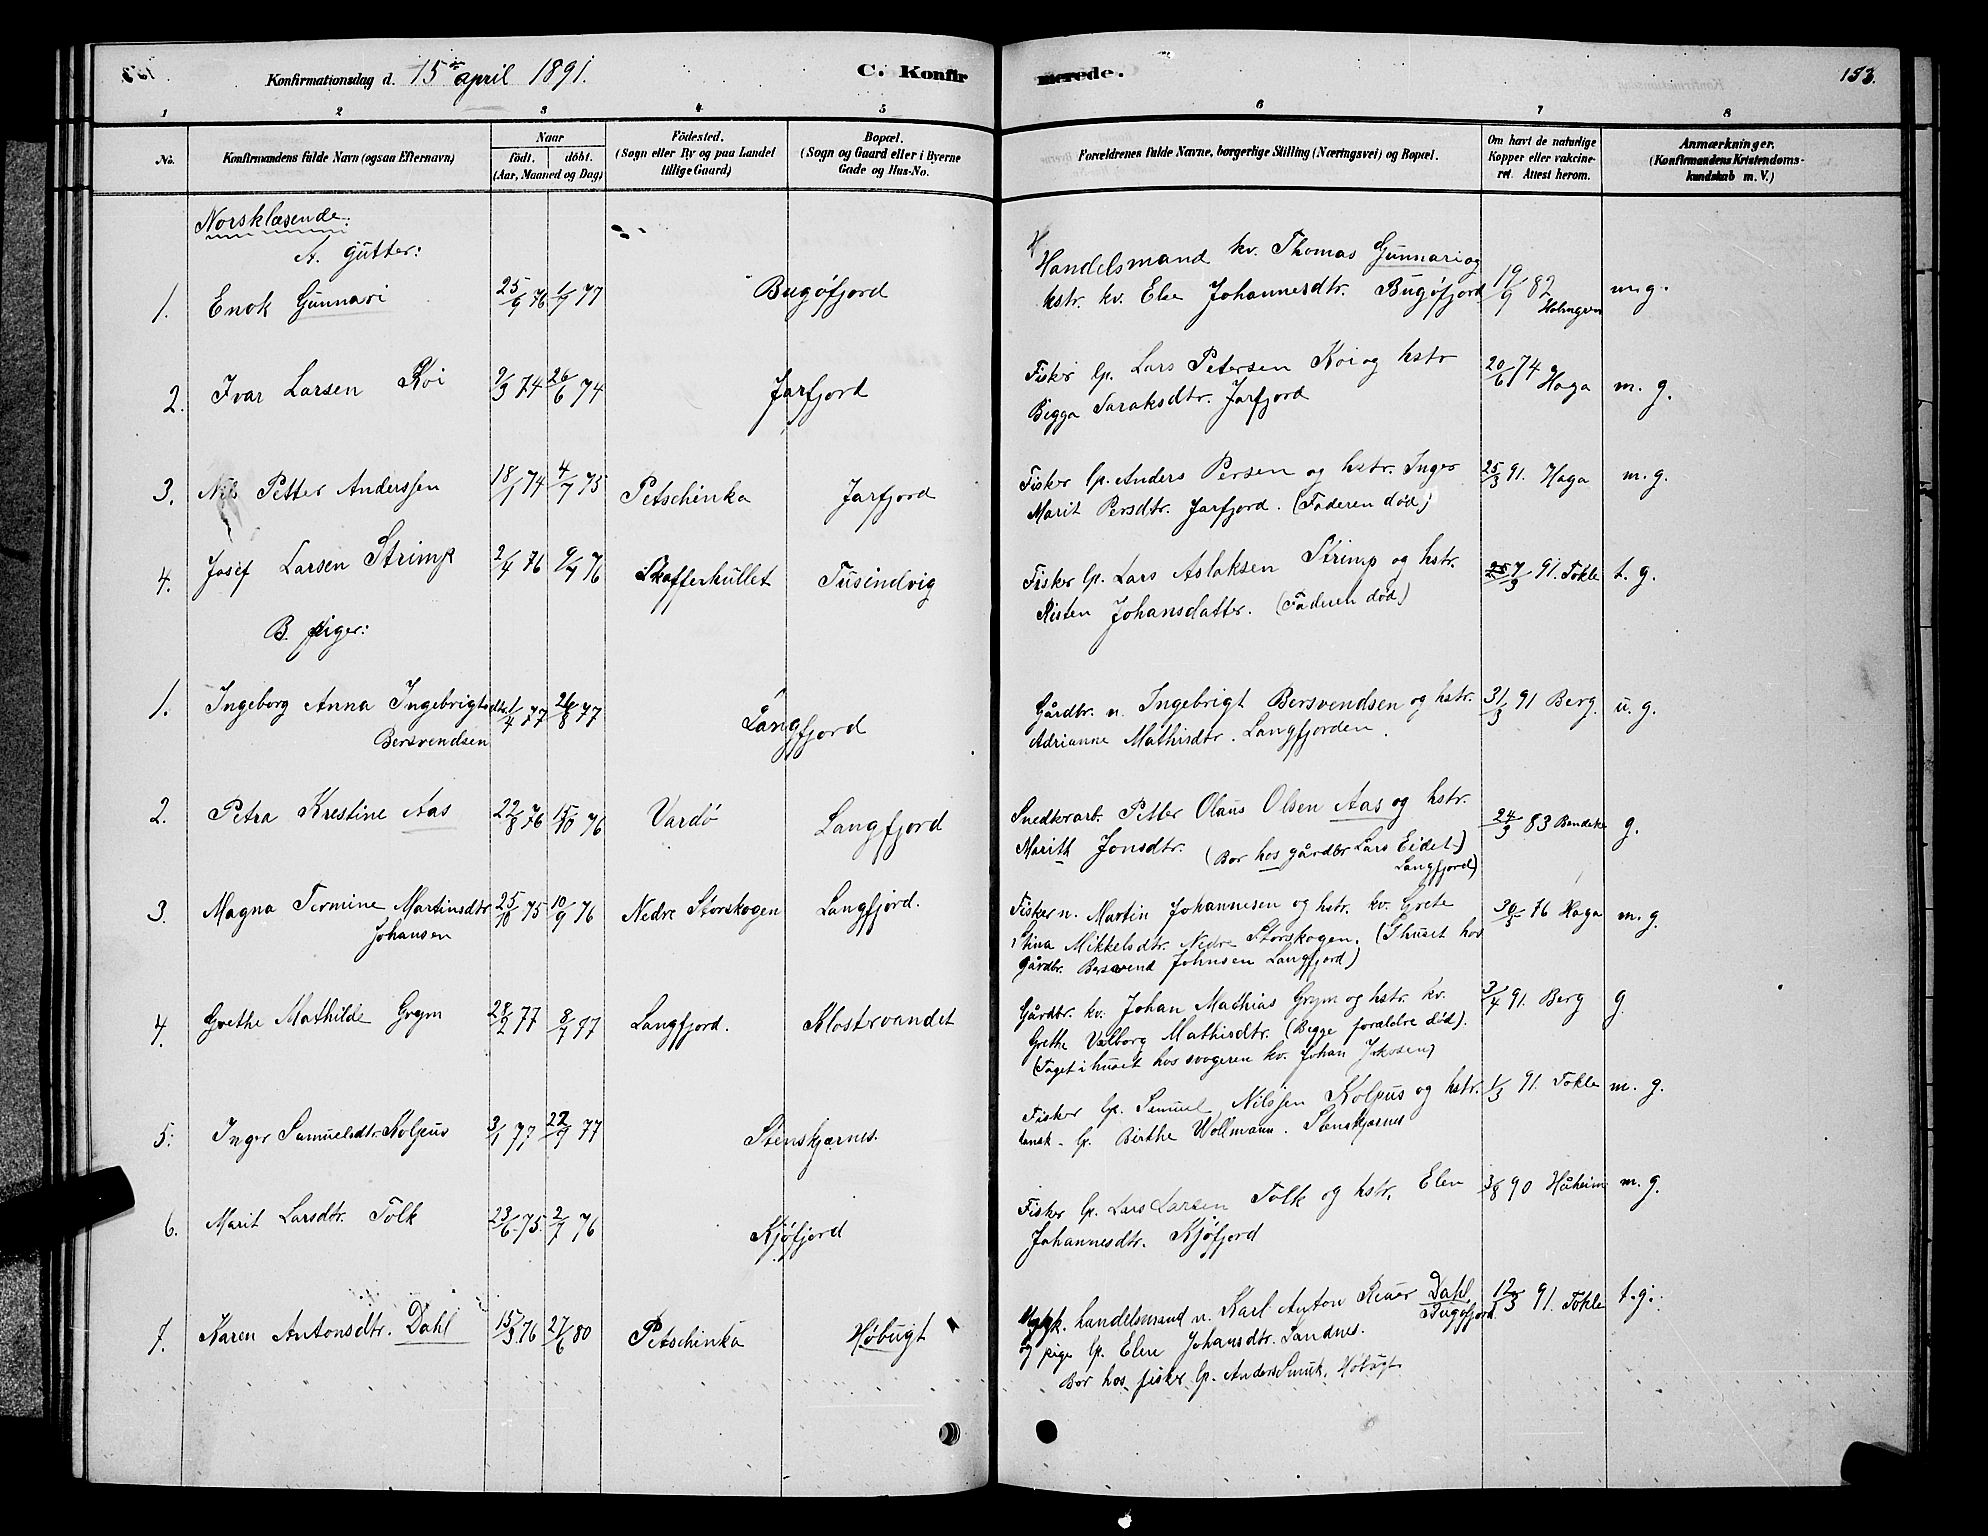 Konfirmationsdag d. 15de april 1891.
C. Konfirmerede.
153.
1 2 3 4 5 6 7 8
No.
Konfirmandens fulde Navn (ogsaa Efternavn)
Naar
født. døbt.
(Aar, Maaned og Dag)
Fødested.
(Sogn eller By og paa Landet
tillige Gaard)
Bopæl.
(Sogn og Gaard eller i Byerne
Gade og Hus-No.
Forældrenes fulde Navne, borgerlige Stilling (Næringsvei) og Bopæl.
Om havt de naturlige
Kopper eller vakcine-
ret. Attest herom.
Anmærkninger.
(Konfirmandens Kristendoms-
kundskab m. V.)
Norsklæsende:
A. gutter:
1. Enok Gunnari 25/9 76 1/7 77 Bugøfjord
Handelsmand kv. Thomas Gunnari og
hstr. kv. Else Johannesdtr. Bugøfjord
19/9 82 Holmgren m. g.
2. Ivar Larsen Koi 9/3 74 26/6 74 Jarfjord
Fisker lp. Lars Petersen Koi og hstr
Bigga Saraksdtr. Jarfjord
20/6 74 Haga m. g.
3. Nils Petter Anderssen 18/1 74 4/7 75 Petschinka Jarfjord
Fisker lp. Anders Persen og hstr. Inger
Marit Persdtr. Jarfjord. (Faderen død)
25/3 91. Haga m. g.
4. Josef Larsen Strimp 2/4 76 9/7 76 Skafferhullet Tusindvig
Fisker lp. Lars Aslaksen Strimp og hstr.
Risten Johansdatter. (Faderen død)
7/3 91. Tokle t. g.
B. piger:
1. Ingeborg Anna Ingebrigtsdtr.
Bersvendsen
1/4 77 26/8 77 Langfjord
Gårdbr. n. Ingebrigt Bersvendsen og hstr.
Adrianne Mathisdtr. Langfjorden.
31/3 91 Berg. u. g.
2. Petra Krestine Aas 22/8 76 15/10 76 Vardø Langfjord
Snedkerarb. Petter Olaus Olsen Aas og hstr.
Marith Jonsdtr. (Bor hos gårdbr Lars Eidet)
Langfjord)
24/9 83 Bendeke g.
3. Magna Termine Martinsdtr
Johansen
25/10 75 10/9 76 Nedre Storskogen Langfjord.
Fisker n. Martin Johannesen og hstr. kv. Grete
Stina Mikkelsdtr. Nedre Storskogen. (I huset hos
gårdbr. Bersvend Johnsen Langfjord)
30/5 76 Haga m. g.
4. Grethe Mathilde Grym 28/2 77 8/7 77 Langfjord. Klostervandet
Gårdbr. kv. Johan Mathias Grym og hstr. kv.
Grethe Valborg Mathisdtr. (Begge forældre død).
(Taget i huset hos svogeren kv. Johan Jakosen)
3/4 91. Berg g.
5. Inger Samuelsdtr. Kolpus 3/1 77 22/7 77 Stenskjærnes.
Fisker lp. Samuel Nilssen Kolpus og hstr.
lansk-lp. Birthe Wollmann. Stenskjærnes
1/3 91. Tokle m. g.
6. Marit Larsdtr. Tolk 23/6 75. 2/7 76 Kjøfjord
Fisker lp. Lars Larsen Tolk og hstr. Elen
Johannesdtr. Kjøfjord
3/8 90 Håheim m. g.
7. Karen Antonsdtr. Dahl 15/3 76 27/6 80 Petschinka Høbugt
Uggk. handelsmand n. Karl Anton Rener Dahl
Bugøfjord
og pige lp. Elen Johansdtr. Sandnes.
Bor hos fisker lp. Anders Smuk, Høbugt
12/3 91. Tokle t. g.